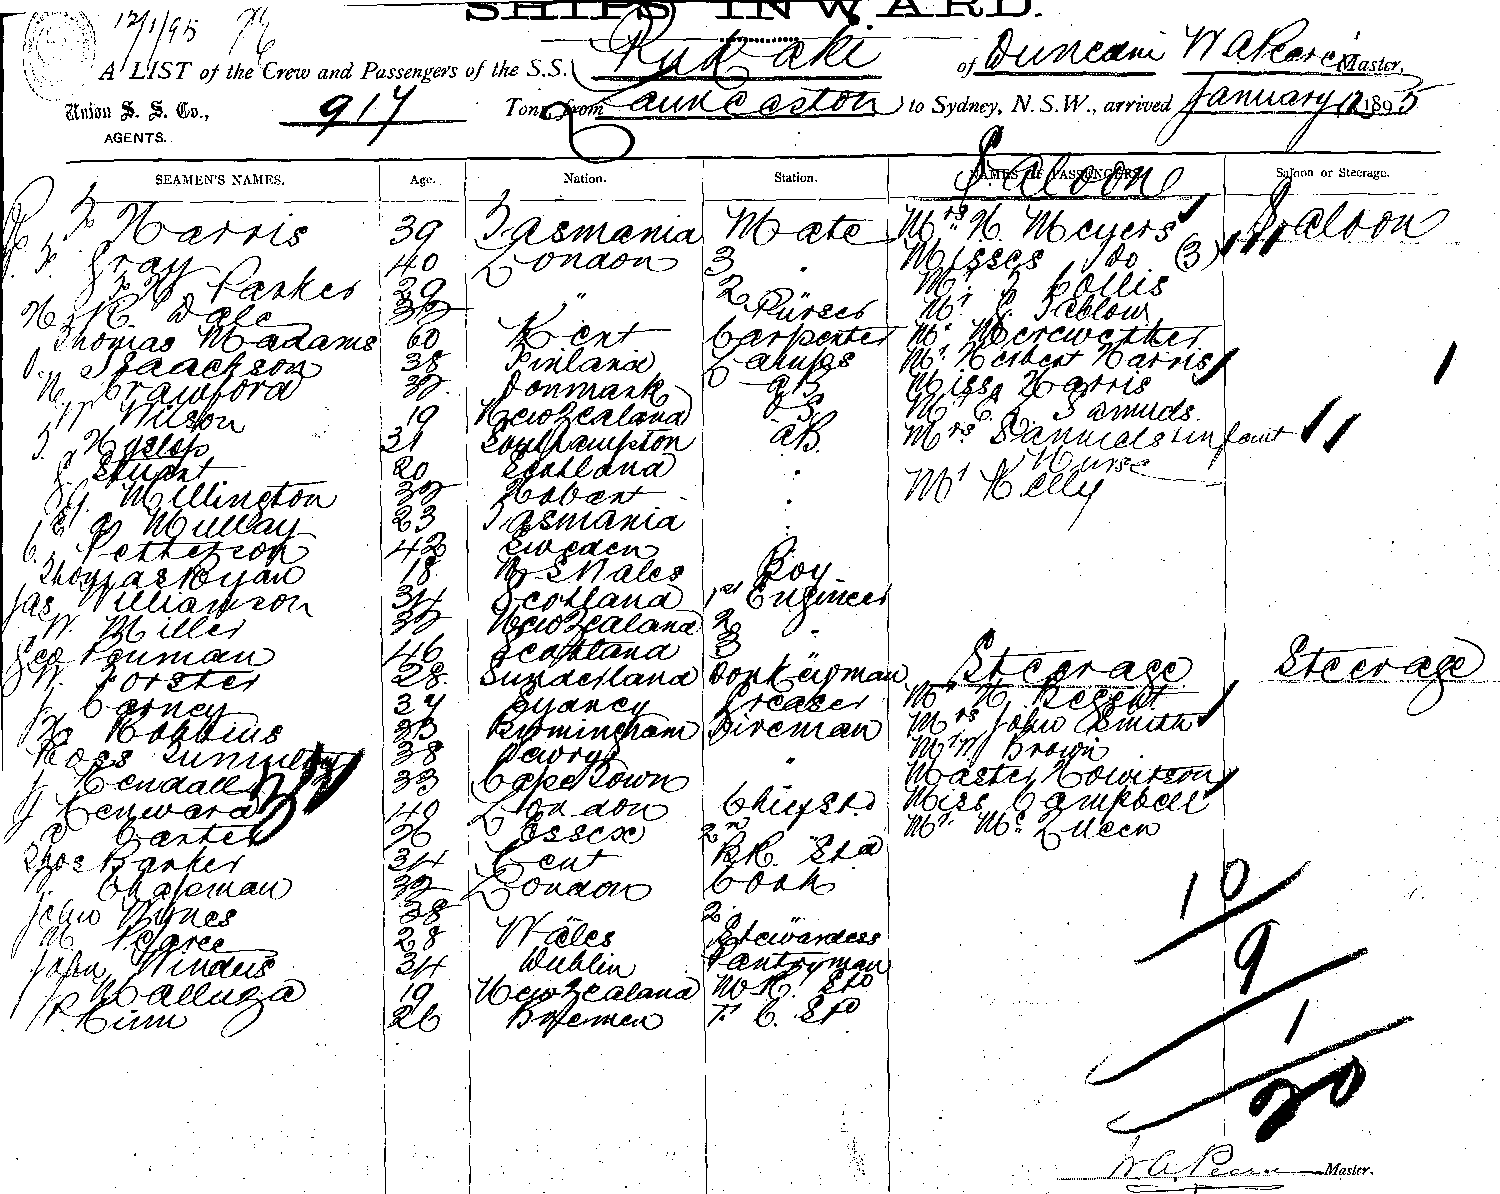 SHIPS INWARD.
12/1/95
A LIST of the Crew and Passengers of the S.S. of Duncan W A Pearce Master,
Union S. S. Co., 917 Tons, from Launceston to Sydney, N.S.W., arrived January 12 1895
AGENTS.
SEAMEN'S NAMES. Age. Nation. Station. NAMES OF PASSENGERS Saloon or Steerage.
Saloon
Harris 39 Tasmania Mate Mrs N. Meyers Saloon
Gray 40 London 3 " Misses Do (3)
Parker 29 2 Mr Collis
H R Dale 32 " Purser Mr
Thomas Madams 60 Kent Carpenter Mr Merewether
Isaackson 38 Finland Lamps Mr Herbert Harris
Crawford 32 Denmark AB Miss Harris
W Wilson 19 New Zealand OS Mr Samuels
Hyslop 31 Southampton AB. Mrs Samuels & infant
Stuart 20 Scotland " Nurse
Millington 32 Hobart " Mr Kelly
23 Tasmania "
C. Petterson 42 Sweden
Thomas Ryan 18 N S Wales Boy
Jas Williamson 34 Scotland 1st Engineer
W. Miller 32 New Zealand 2 "
Geo Penman 46 Scotland 3 Steerage Steerage
W. Forster 28 Sunderland Donkeyman
J. Carney 34 Sydney Greaser Mr
Robbins 23 Birmingham Fireman Mrs John Smith
Ross 38 " Mr W Brown
J Kendall 33 Cape Town Master Howitson
J Kenward 40 London Chief Std Miss Campbell
Carter 26 Essex 2nd
Thos Barker 34 Kent BR. Std
Chapman 32 London Cook
10
John Hynes 38 2
M Pearce 28 Wales Stewardess
9
John Winders 34 Dublin Pantryman
19 New Zealand
26 Bremen F. C. Std
1
20
W A Pearce Master.